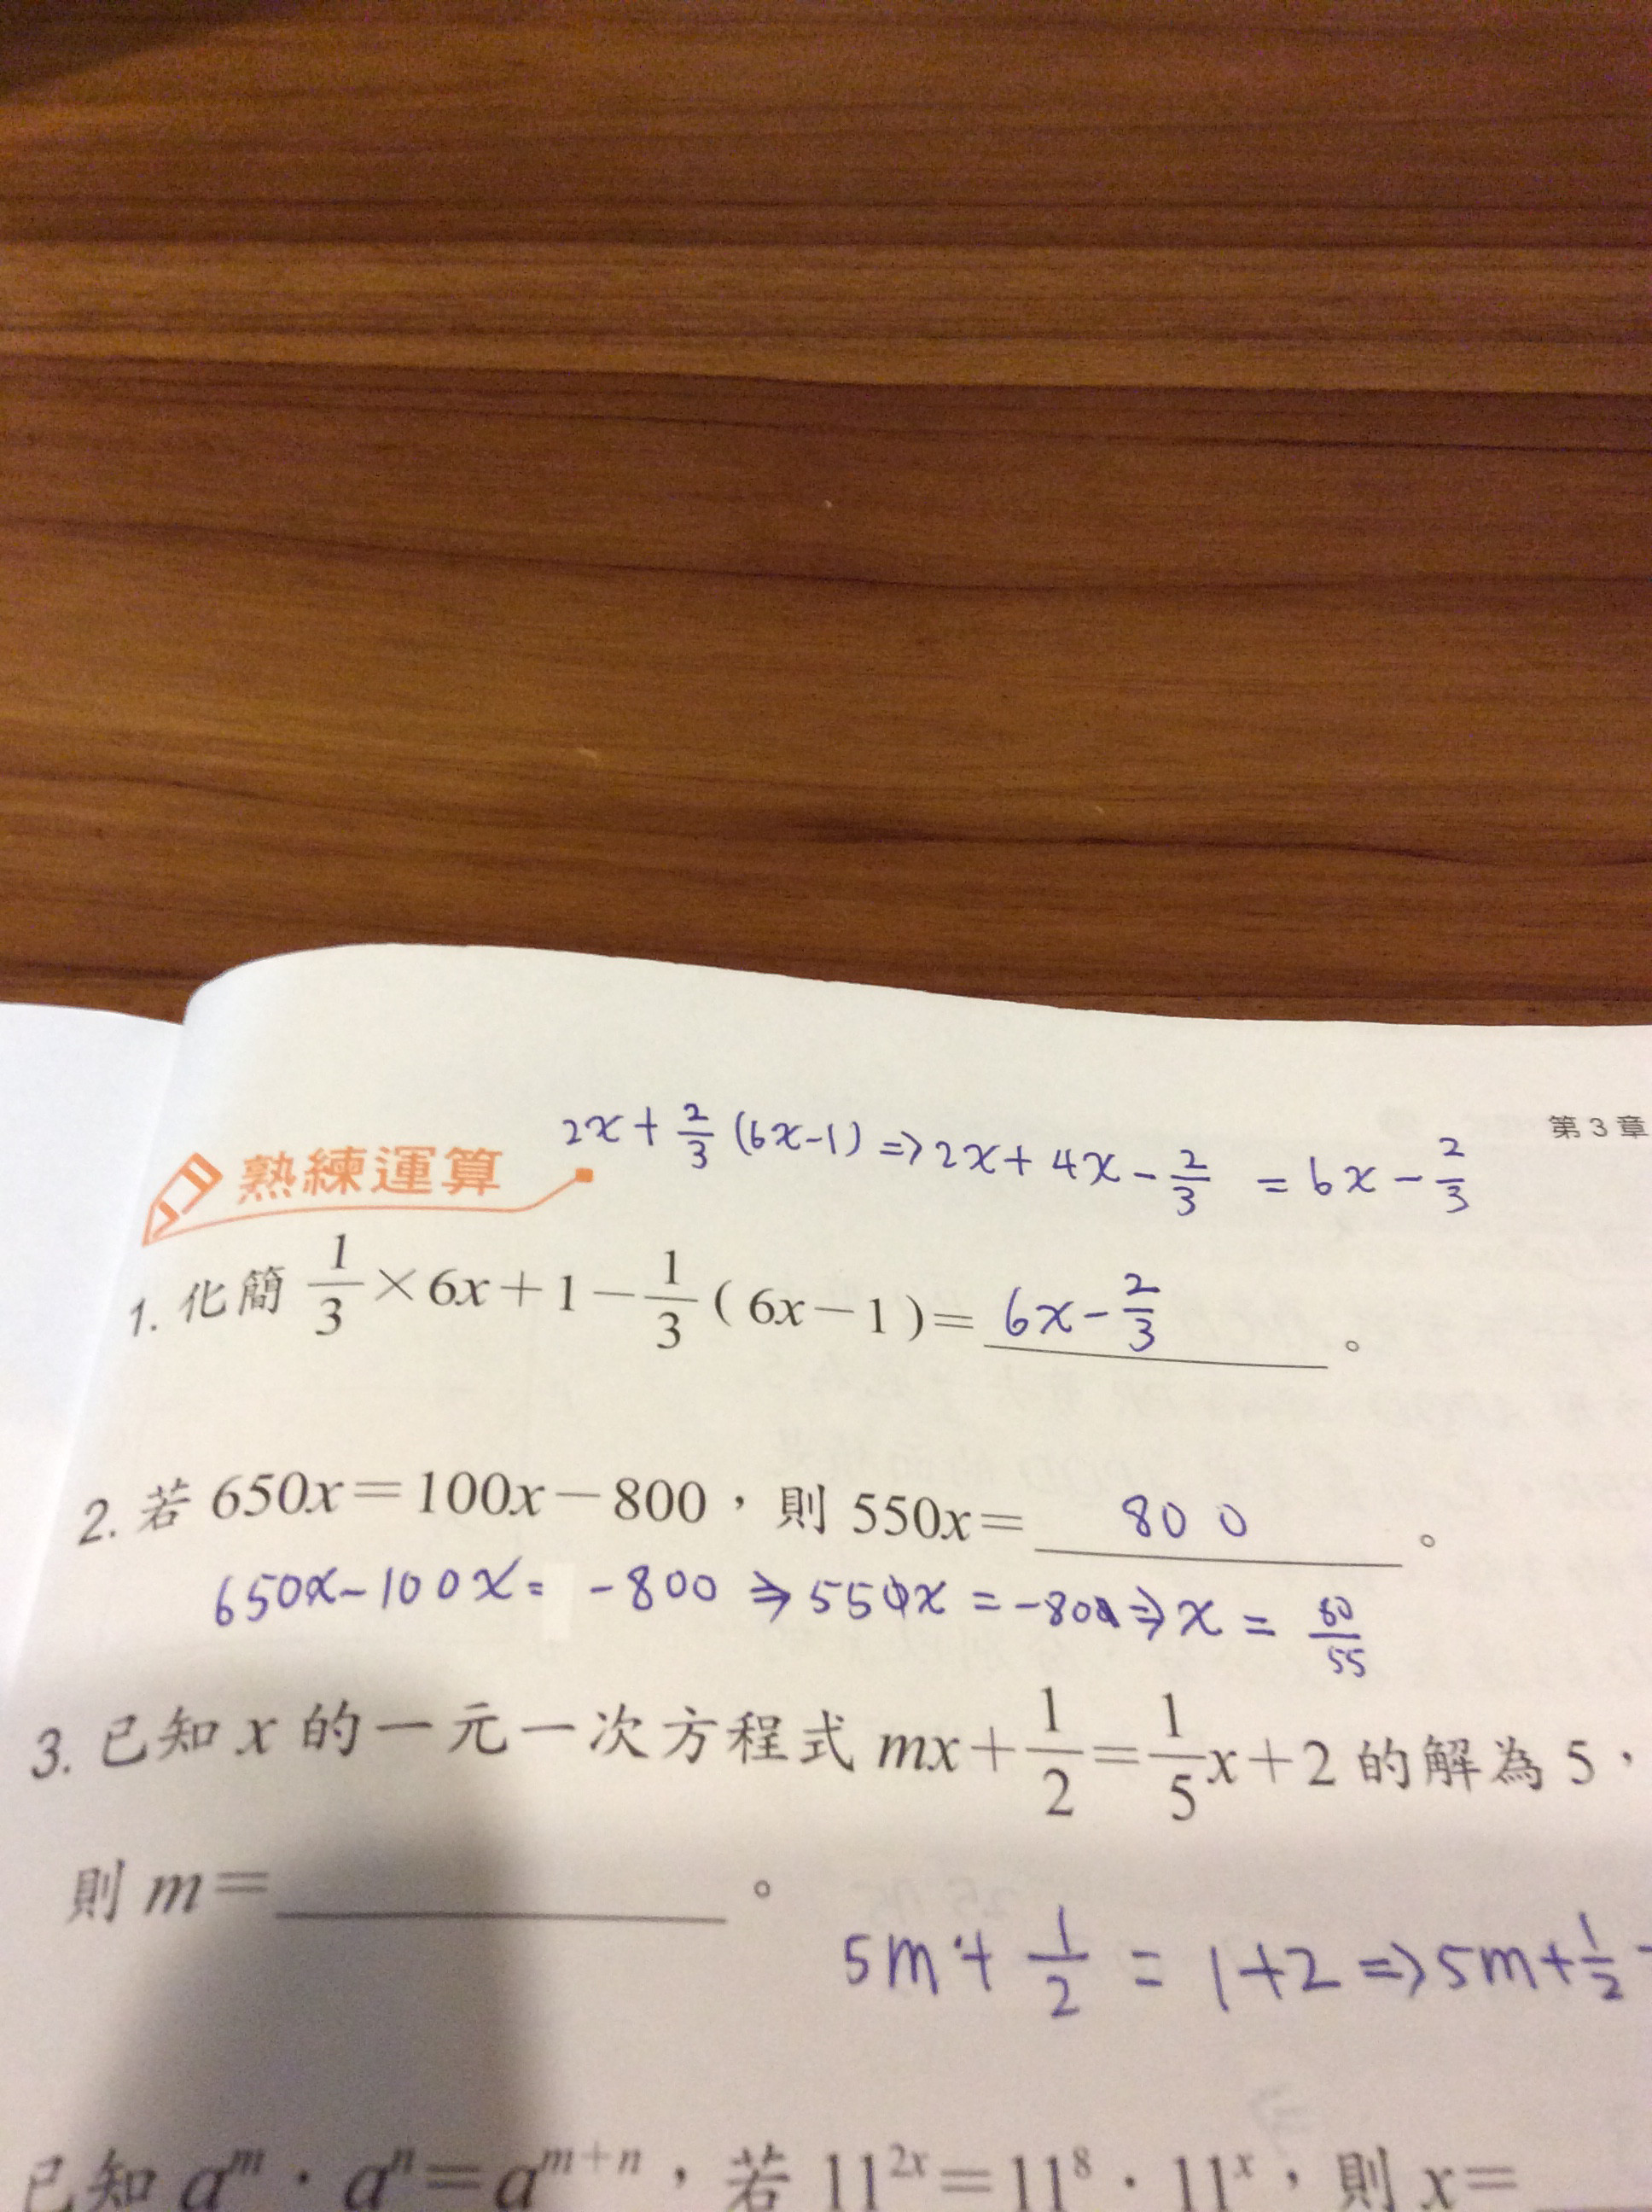 第3章
2x+\frac{2}{3}(6x-1)⇒2x+4x-\frac{2}{3} =6x-\frac{2}{3}
熟練運算
1. 化簡 \frac{1}{3}×6x+1-\frac{1}{3}(6x-1)= 6x-\frac{2}{3} 。
2. 若 650x=100x-800，則 550x= 800 。
650x-100x= -800 ⇒550x=-800⇒x=\frac{80}{55}
3. 已知 x 的一元一次方程式 mx+\frac{1}{2}=\frac{1}{5}x+2 的解為 5，
則 m=______。
5m+\frac{1}{2}=1+2⇒5m+\frac{1}{2}
已知 a^m·a^n=a^{m+n}，若 11^{2x}=11^8·11^x，則 x=